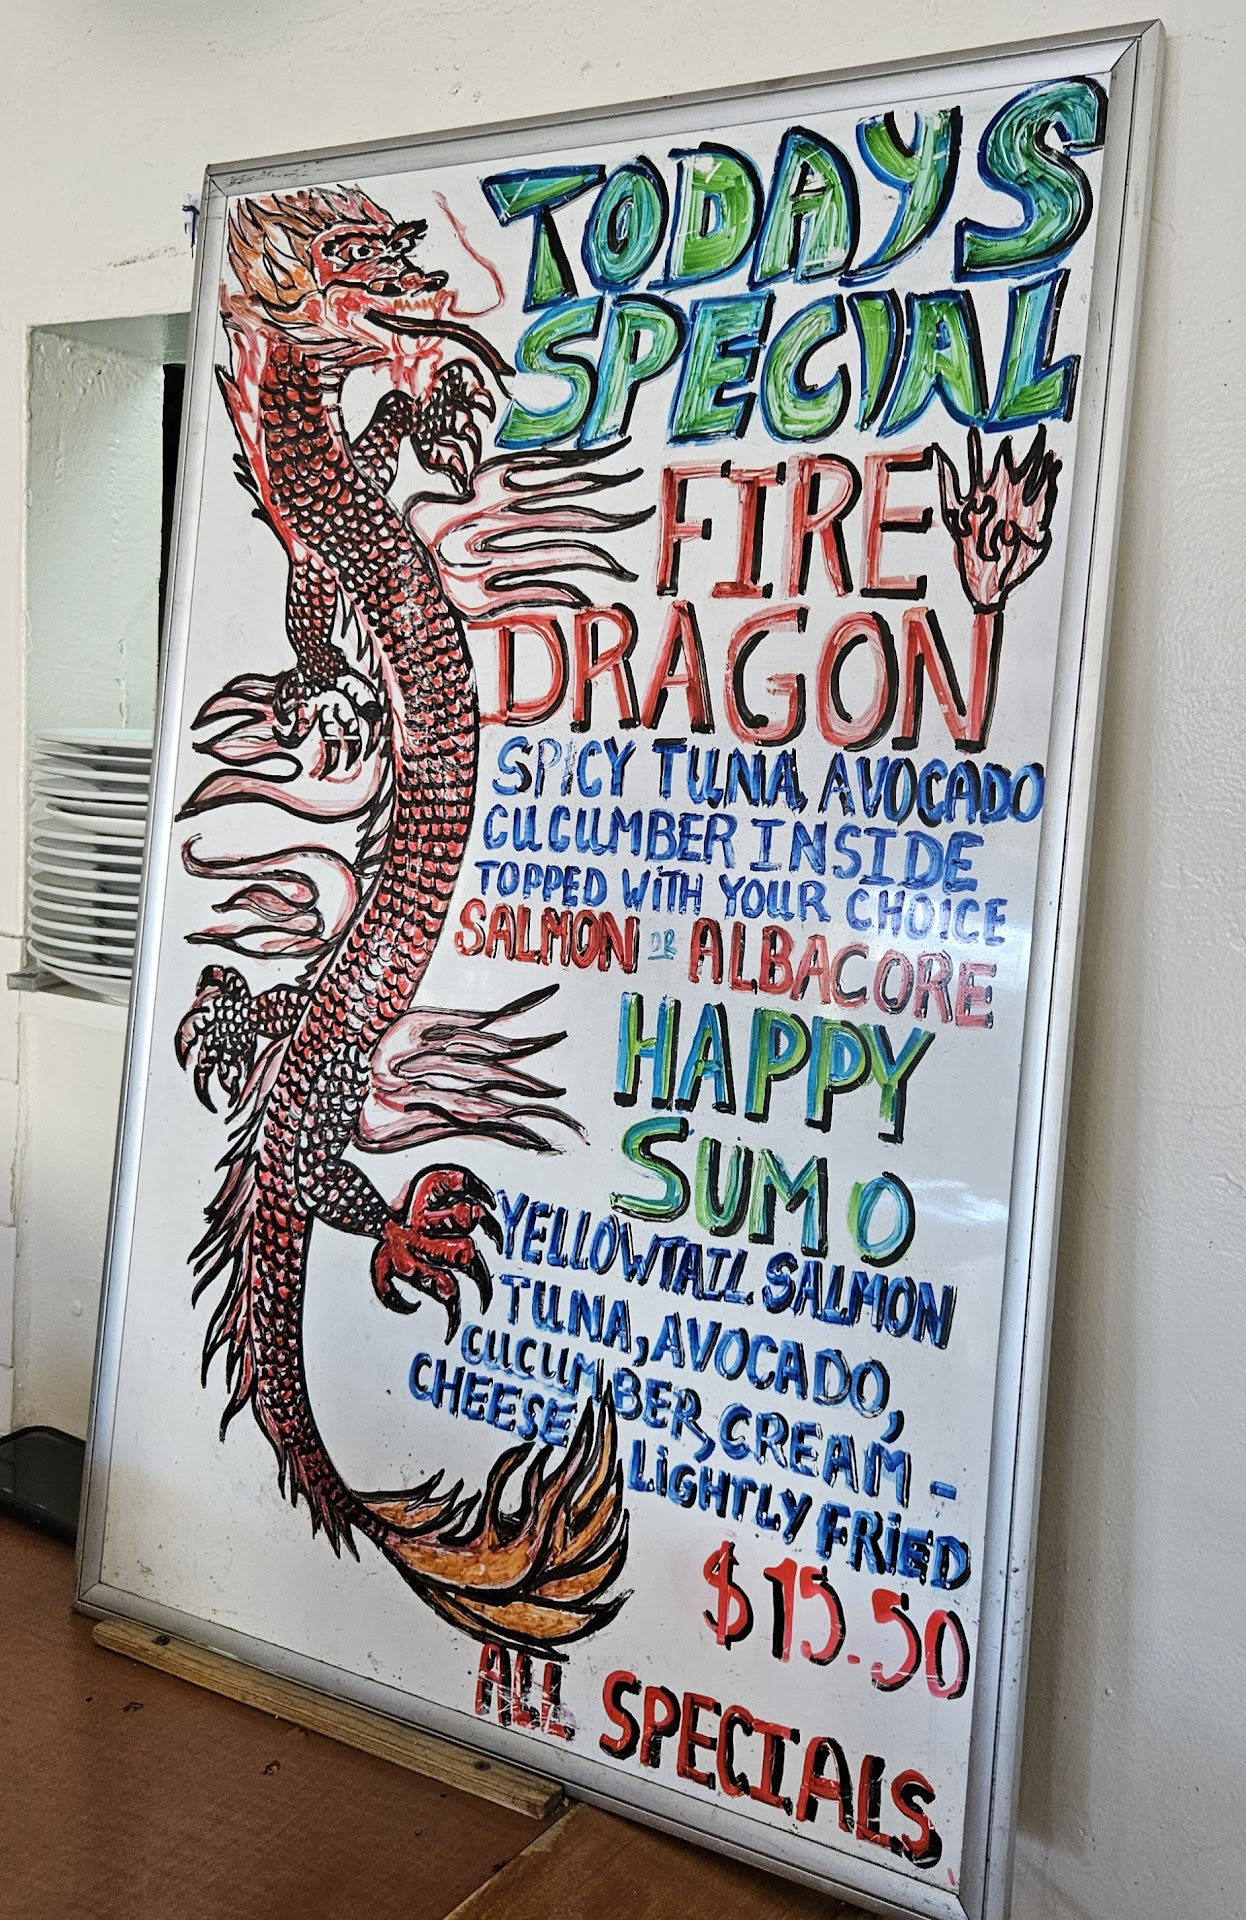 TODAYS
SPECIAL
FIRE
DRAGON
SPICY TUNA, AVOCADO
CUCUMBER INSIDE
TOPPED WITH YOUR CHOICE
SALMON OR ALBACORE
HAPPY
SUMO
YELLOWTAIL SALMON
TUNA, AVOCADO,
CUCUMBER, CREAM -
CHEESE
LIGHTLY FRIED
$15.50
ALL SPECIALS